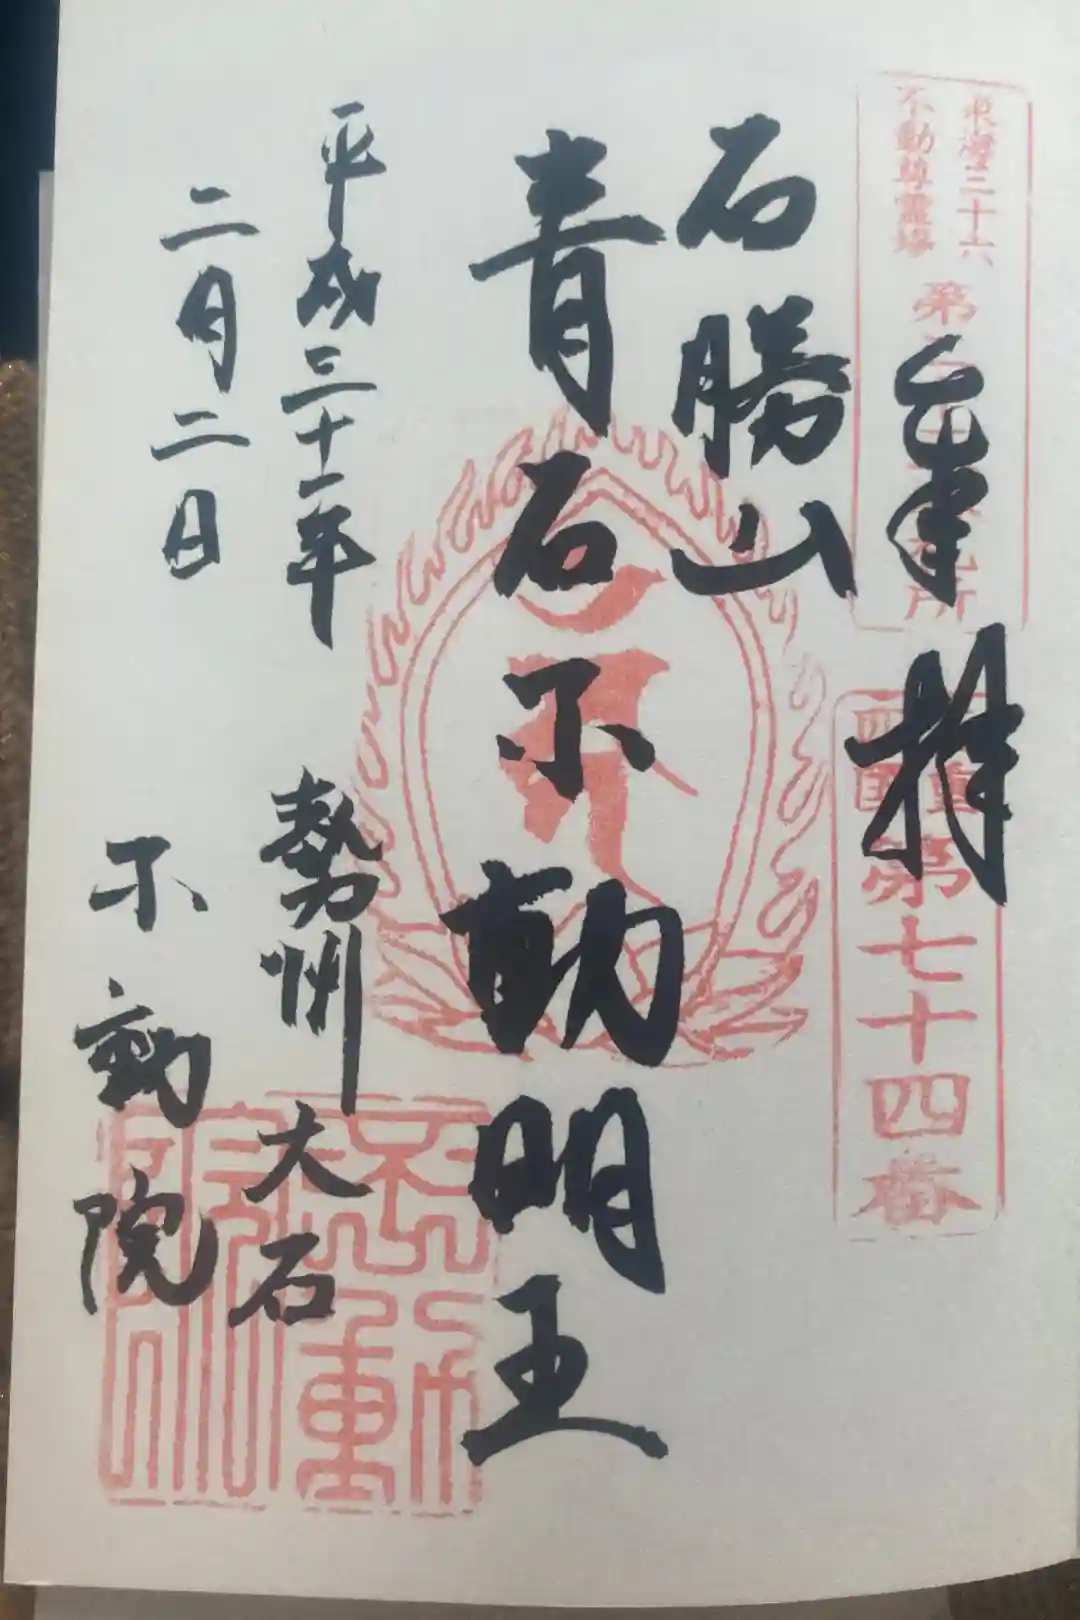 東海三十六
不動尊霊場
第三十
札所
三重
四国
第七十四番
奉拝
石勝山
青石不動明王
平成三十一年
二月二日
勢州大石
不動院
不動院